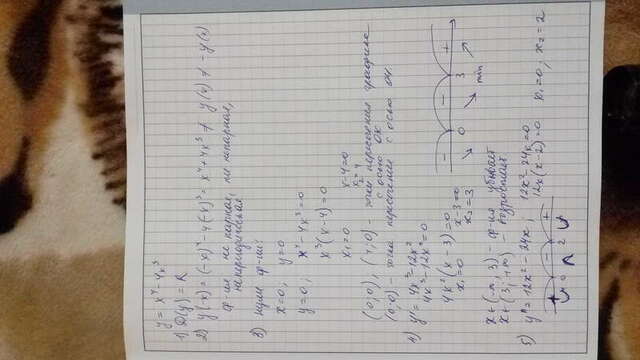 y = x⁴ - 4x³
1) D(y) = R
2) y(-x) = (-x)⁴ - 4(-x)³ = x⁴ + 4x³ ≠ y(x) ≠ - y(x)
ф-ия не парная, не непарная,
непериодическая
3) нули ф-ии:
x = 0; y = 0
y = 0; x⁴ - 4x³ = 0
x³(x - 4) = 0
x₁ = 0 x - 4 = 0
x₂ = 4
(0; 0), (4; 0) - точки пересечения графика
с осью OX
(0; 0) - точка пересечения с осью OY.
4) y' = 4x³ - 12x²
4x³ - 12x² = 0
4x²(x - 3) = 0
x₁ = 0 x - 3 = 0
x₂ = 3
- - +
0 3
min
x ∈ (-∞; 3) - ф-ия убывает
x ∈ (3; +∞) - возрастает
5) y'' = 12x² - 24x; 12x² - 24x = 0
12x(x - 2) = 0 x₁ = 0; x₂ = 2
+ - +
0 2